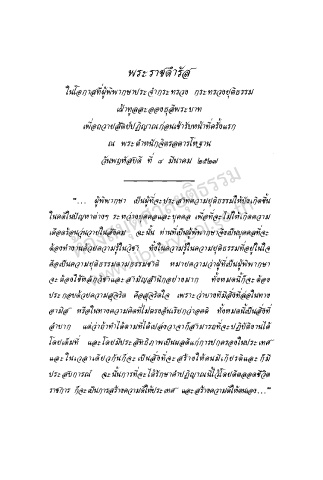 พระราชดำรัส
ในโอกาสที่ผู้พิพากษาประจำกระทรวง กระทรวงยุติธรรม
เฝ้าทูลละอองธุลีพระบาท
เพื่อถวายสัตย์ปฏิญาณก่อนเข้ารับหน้าที่ครั้งแรก
ณ พระตำหนักจิตรลดารโหฐาน
วันพฤหัสบดี ที่ ๘ มีนาคม ๒๕๒๗
“... ผู้พิพากษา เป็นผู้ที่จะประสาทความยุติธรรมให้บังเกิดขึ้น
ในคดีในปัญหาต่างๆ ระหว่างบุคคลและบุคคล เพื่อที่จะไม่ให้เกิดความ
เดือดร้อนวุ่นวายในสังคม ฉะนั้น ท่านที่เป็นผู้พิพากษาจึงเป็นบุคคลที่จะ
ต้องทำงานด้วยความรู้ในวิชา ทั้งในความรู้ในความยุติธรรมที่อยู่ในใจ
คือเป็นความยุติธรรมตามธรรมชาติ หมายความว่าผู้ที่เป็นผู้พิพากษา
จะต้องใช้หลักวิชาและสามัญสำนึกอย่างมาก ทั้งหมดนี้ก็จะต้อง
ประกอบด้วยความสุจริต คือสุจริตใจ เพราะว่าบางทีมีสิ่งที่ล่อในทาง
อามิส หรือในทางความคิดที่ไม่ตรงอันเรียกว่าอคติ ทั้งหมดนี้เป็นสิ่งที่
ลำบาก แต่ว่าถ้าทำได้ตามที่ได้เปล่งวาจาก็สามารถที่จะปฏิบัติงานได้
โดยเต็มที่ และโดยมีประสิทธิภาพเป็นผลดีแก่การปกครองในประเทศ
และในเวลาเดียวกันก็จะเป็นสิ่งที่จะสร้างให้ตนมีเกียรติและก็มี
ประสบการณ์ ฉะนั้นการที่จะได้รักษาคำปฏิญาณนี้ไว้โดยตลอดชีวิต
ราชการ ก็จะเป็นการสร้างความดีให้ประเทศ และสร้างความดีให้ตนเอง...”